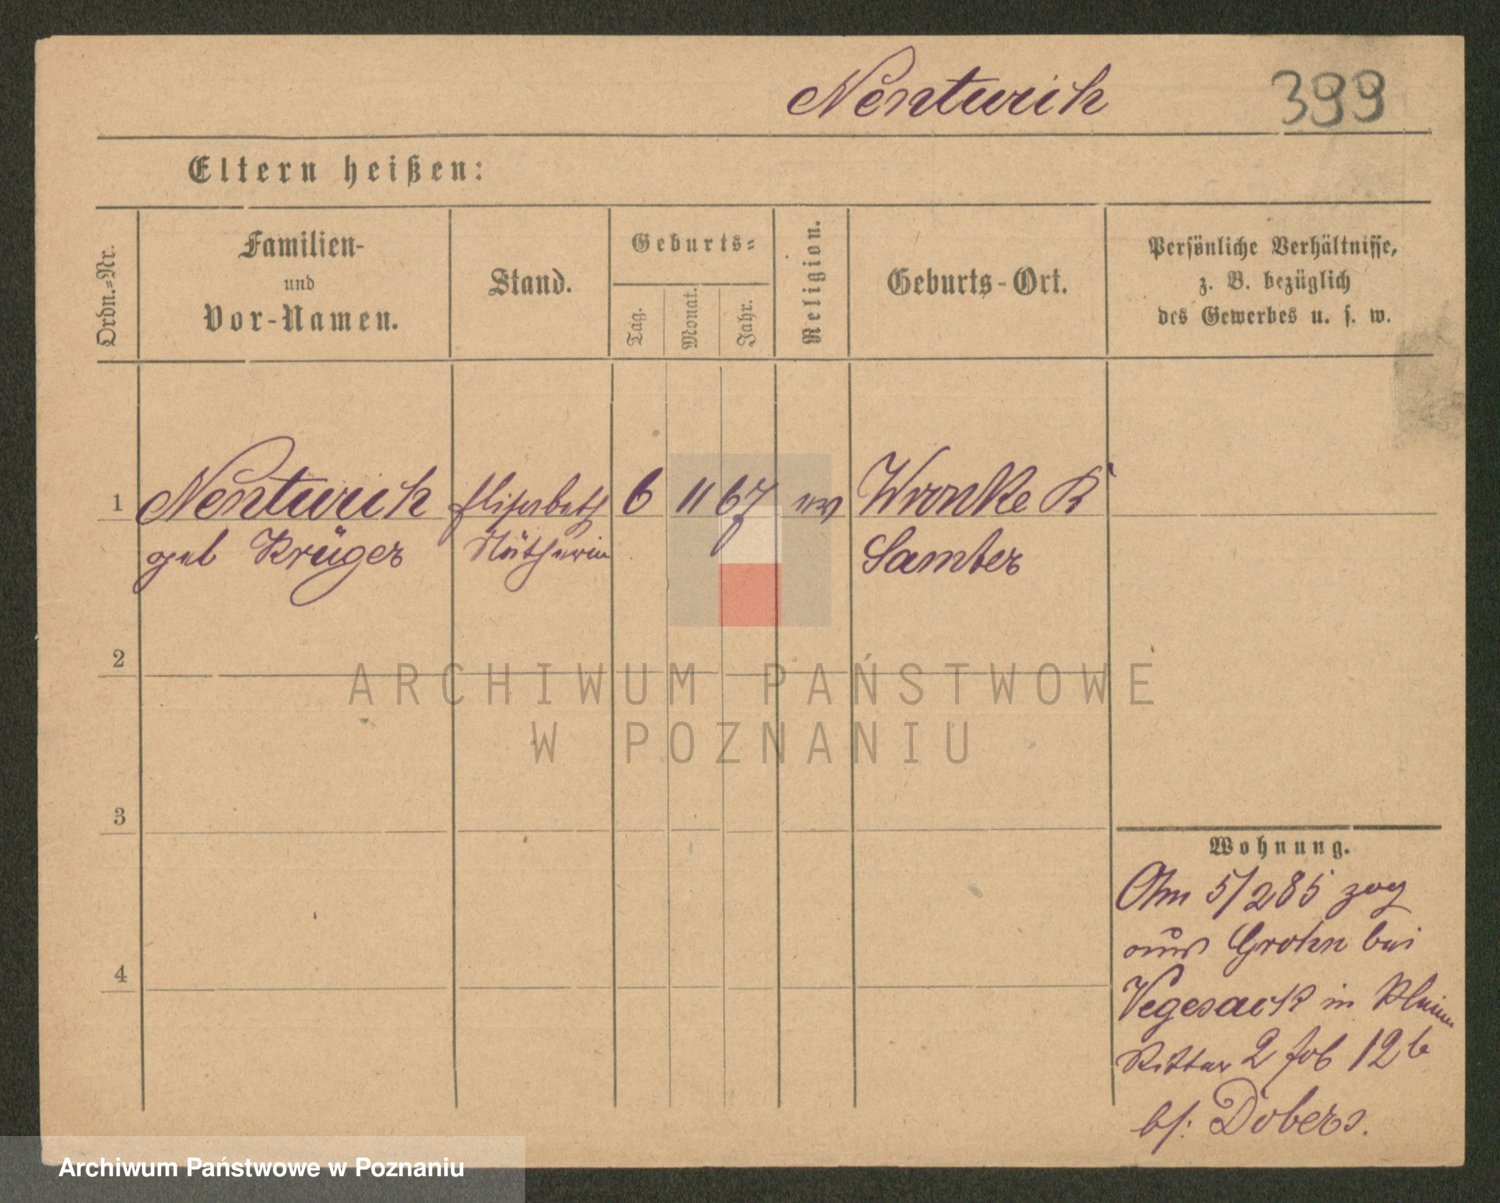 Nenturich 399
Eltern heißen:
Ordn.-Nr.
Familien-
und
Vor-Namen.
Stand.
Geburts-
Tag.
Monat.
Jahr.
Religion.
Geburts-Ort.
Persönliche Verhältnisse,
z. B. bezüglich
des Gewerbes u. s. w.
1 Nenturich Elisabeth 6 11 67 ev Wronke K
geb Krüger Näthterin Samter
2
ARCHIWUM PAŃSTWOWE
W POZNANIU
3
Wohnung.
Am 5/2 85 zog
aus Grohn bei
Vegesack in
Ritter 2 12 b
bs: Dobers.
4
Archiwum Państwowe w Poznaniu